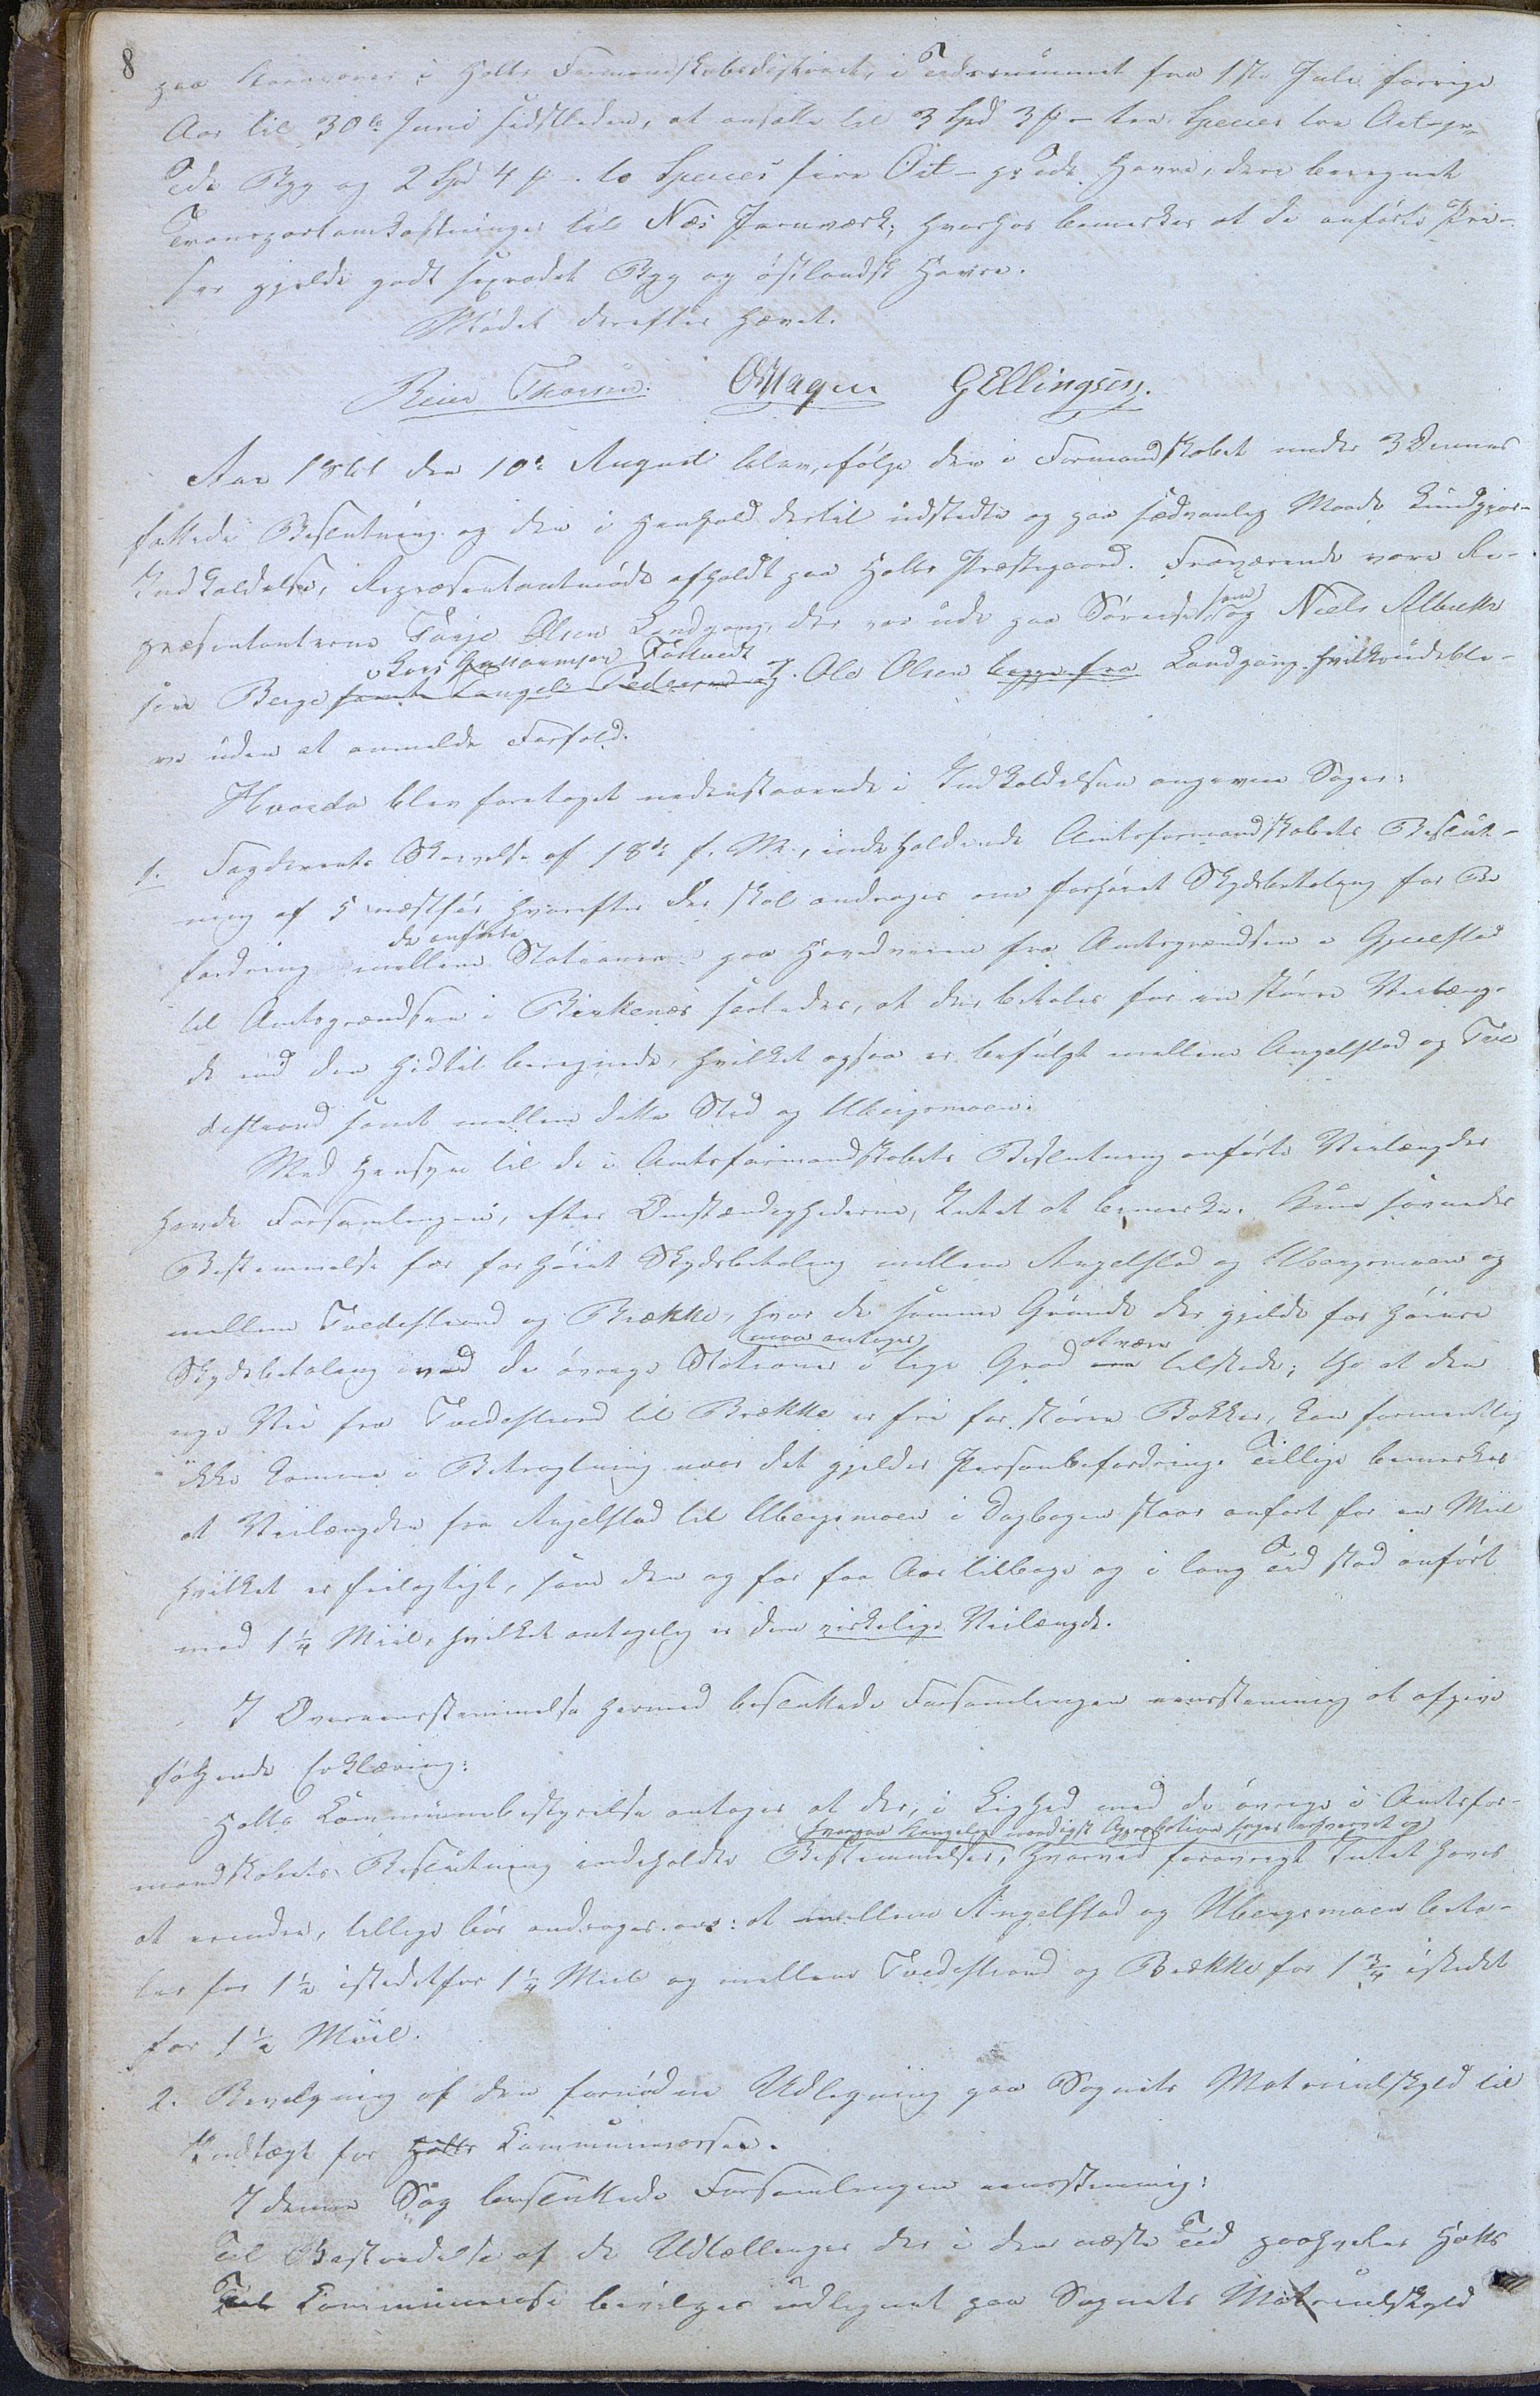 8
paa Kornvarer i Holts Formandskabsdistrict, i Tidsrummet fra 1ste Juli forrige
Aar til 30te Juni sidstleden, at ansætte til 3 Spd 3 ß – tre Species tre Ort – pr
Tde Byg og 2 Spd 4 ß – to Species fire Ort – pr Tde Havre, deri beregnet
Transportomkostninger til Næs Jernværk; hvorhos bemærkes at de anførte Pri-
ser gjelde godt sexradet Byg og östlandsk Havre.
Mödet derefter hævet.
Reier Thorsen. OHagen GEllingsen.
Aar 1861 den 10de August blev, ifölge den i Formandskabet under 3 Dennes
fattede Beslutning og den i Henhold dertil udstedte og paa sædvanlig Maade kundgjor-
Indkaldelse, Repræsentantmöde afholdt paa Holts Præstegaard. Fraværende vare Re-
præsentanterne Tarje Olsen Landgang, der var ude paa Söreise, samt og Niels Alberts
sen Berge Lars Guttormsen Föltvedt samt Pedersen og Ole Olsen begge fra Landgang. hvilke udeble-
ve uden at anmelde Forfald.
Hvorda blev foretaget nedenstaaende i Indkaldelsen angivne Sager:
1. Fogderiets Skrivelse af 18de f. M., indeholdende Amtsformandskabets Beslut-
ning af 5 næstför, hvorefter der skal andrages om forhöiet Skydsbetaling for Be
fordring mellem de anförte Stationer paa Hovedveien fra Amtsgrændsen i Gjerstad
til Amtsgrændsen i Birkenæs saaledes, at der betales for en större Veilæng-
de end den hidtil beregnede, hvilket ogsaa er befulgt mellem Angelstad og Tve
destrand samt mellem dette Sted og Ubergsmoen.
Med Hensyn til de i Amtsformandskabets Beslutning anförte Veilængder
havde Forsamlingen, efter Omstændighederne, Intet at bemærke. Kun savnedes
Bestemmelse for forhöiet Skydsbetaling mellem Angelstad og Ubergsmoen og
mellem Tvedestrand og Brække, hvor de samme Grunde der gjelde for höiere
Skydsbetaling ved de övrige Stationer maa antages i lige Grad at være tilstede; tho at den
nye Vei fra Tvedestrand til Brække er fri for större Bakker, kan formentlig
ikke komme i Betragtning naar det gjelder Personbefordring. Tillige bemærkes
at Veilængden fra Angelstad til Ubergsmoen i Dagbogen staar anfört for en Miil
hvilket er feilagtigt, som den og for faa Aar tilbage og i lang Tid stod anfört
med 1 1/4 Miil, hvilket antagelig er den virkelige Veilængde.
I Overeensstemmelse hermed besluttede Forsamlingen eensstemmig at afgive
fölgende Erklæring:
Holts Communebestyrelse antager at der, i Lighed med de övrige i Amtsfor-
mandskabets Beslutning indeholdte Bestemmelser, hvorpaa Kongelig naadigst Approbation söges erhvervet og hvorved forövrigt Intet haves
at erindre, tillige bör andrages om: at mellem Angelstad og Ubergsmoen beta-
les for 1 1/2 istedetfor 1 1/4 Miil og mellem Tvedestrand og Brække for 1 3/4 istedet
for 1 1/2 Miil.
2. Bevilgning af den fornödne Udligning paa Sognets Matriculskyld til
Indtægt for Holts Communecasse.
I denne Sag besluttede Forsamlingen eensstemmig:
Til Bestridelse af de Udtællinger der i den næste Tid paahviler Holts
Communecasse bevilges udlignet paa Sognets Matriculskyld